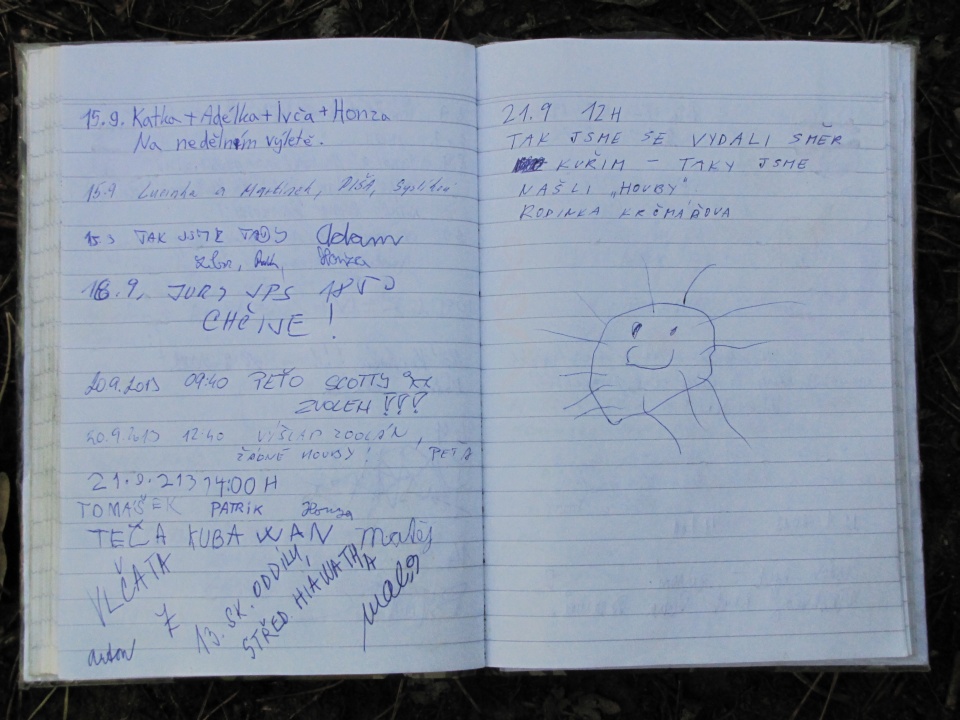 15.9. Katka + Adélka + Ivča + Honza
Na nedělním výletě.
15.9 Lucinka a
TAK JSME TADY Adam
Honza
18.9.
CHČIJE!
20.9.2013 09:40 PEŤO SCOTTY
ZVOLEN !!!
20.9.2013 12:40
ŽÁDNÉ HOUBY! PEŤA
21.9.213 14:00 H
TOMÁŠEK PATRIK Honza
TEČA KUBA WAN Matěj
VLČATA
Z
13. SK. ODDÍLU,
STŘED. HIAWATHA
anton
21.9 12H
TAK JSME SE VYDALI SMĚR
KUŘIM – TAKY JSME
NAŠLI „HOUBY"
RODINKA KRČMÁŘOVA